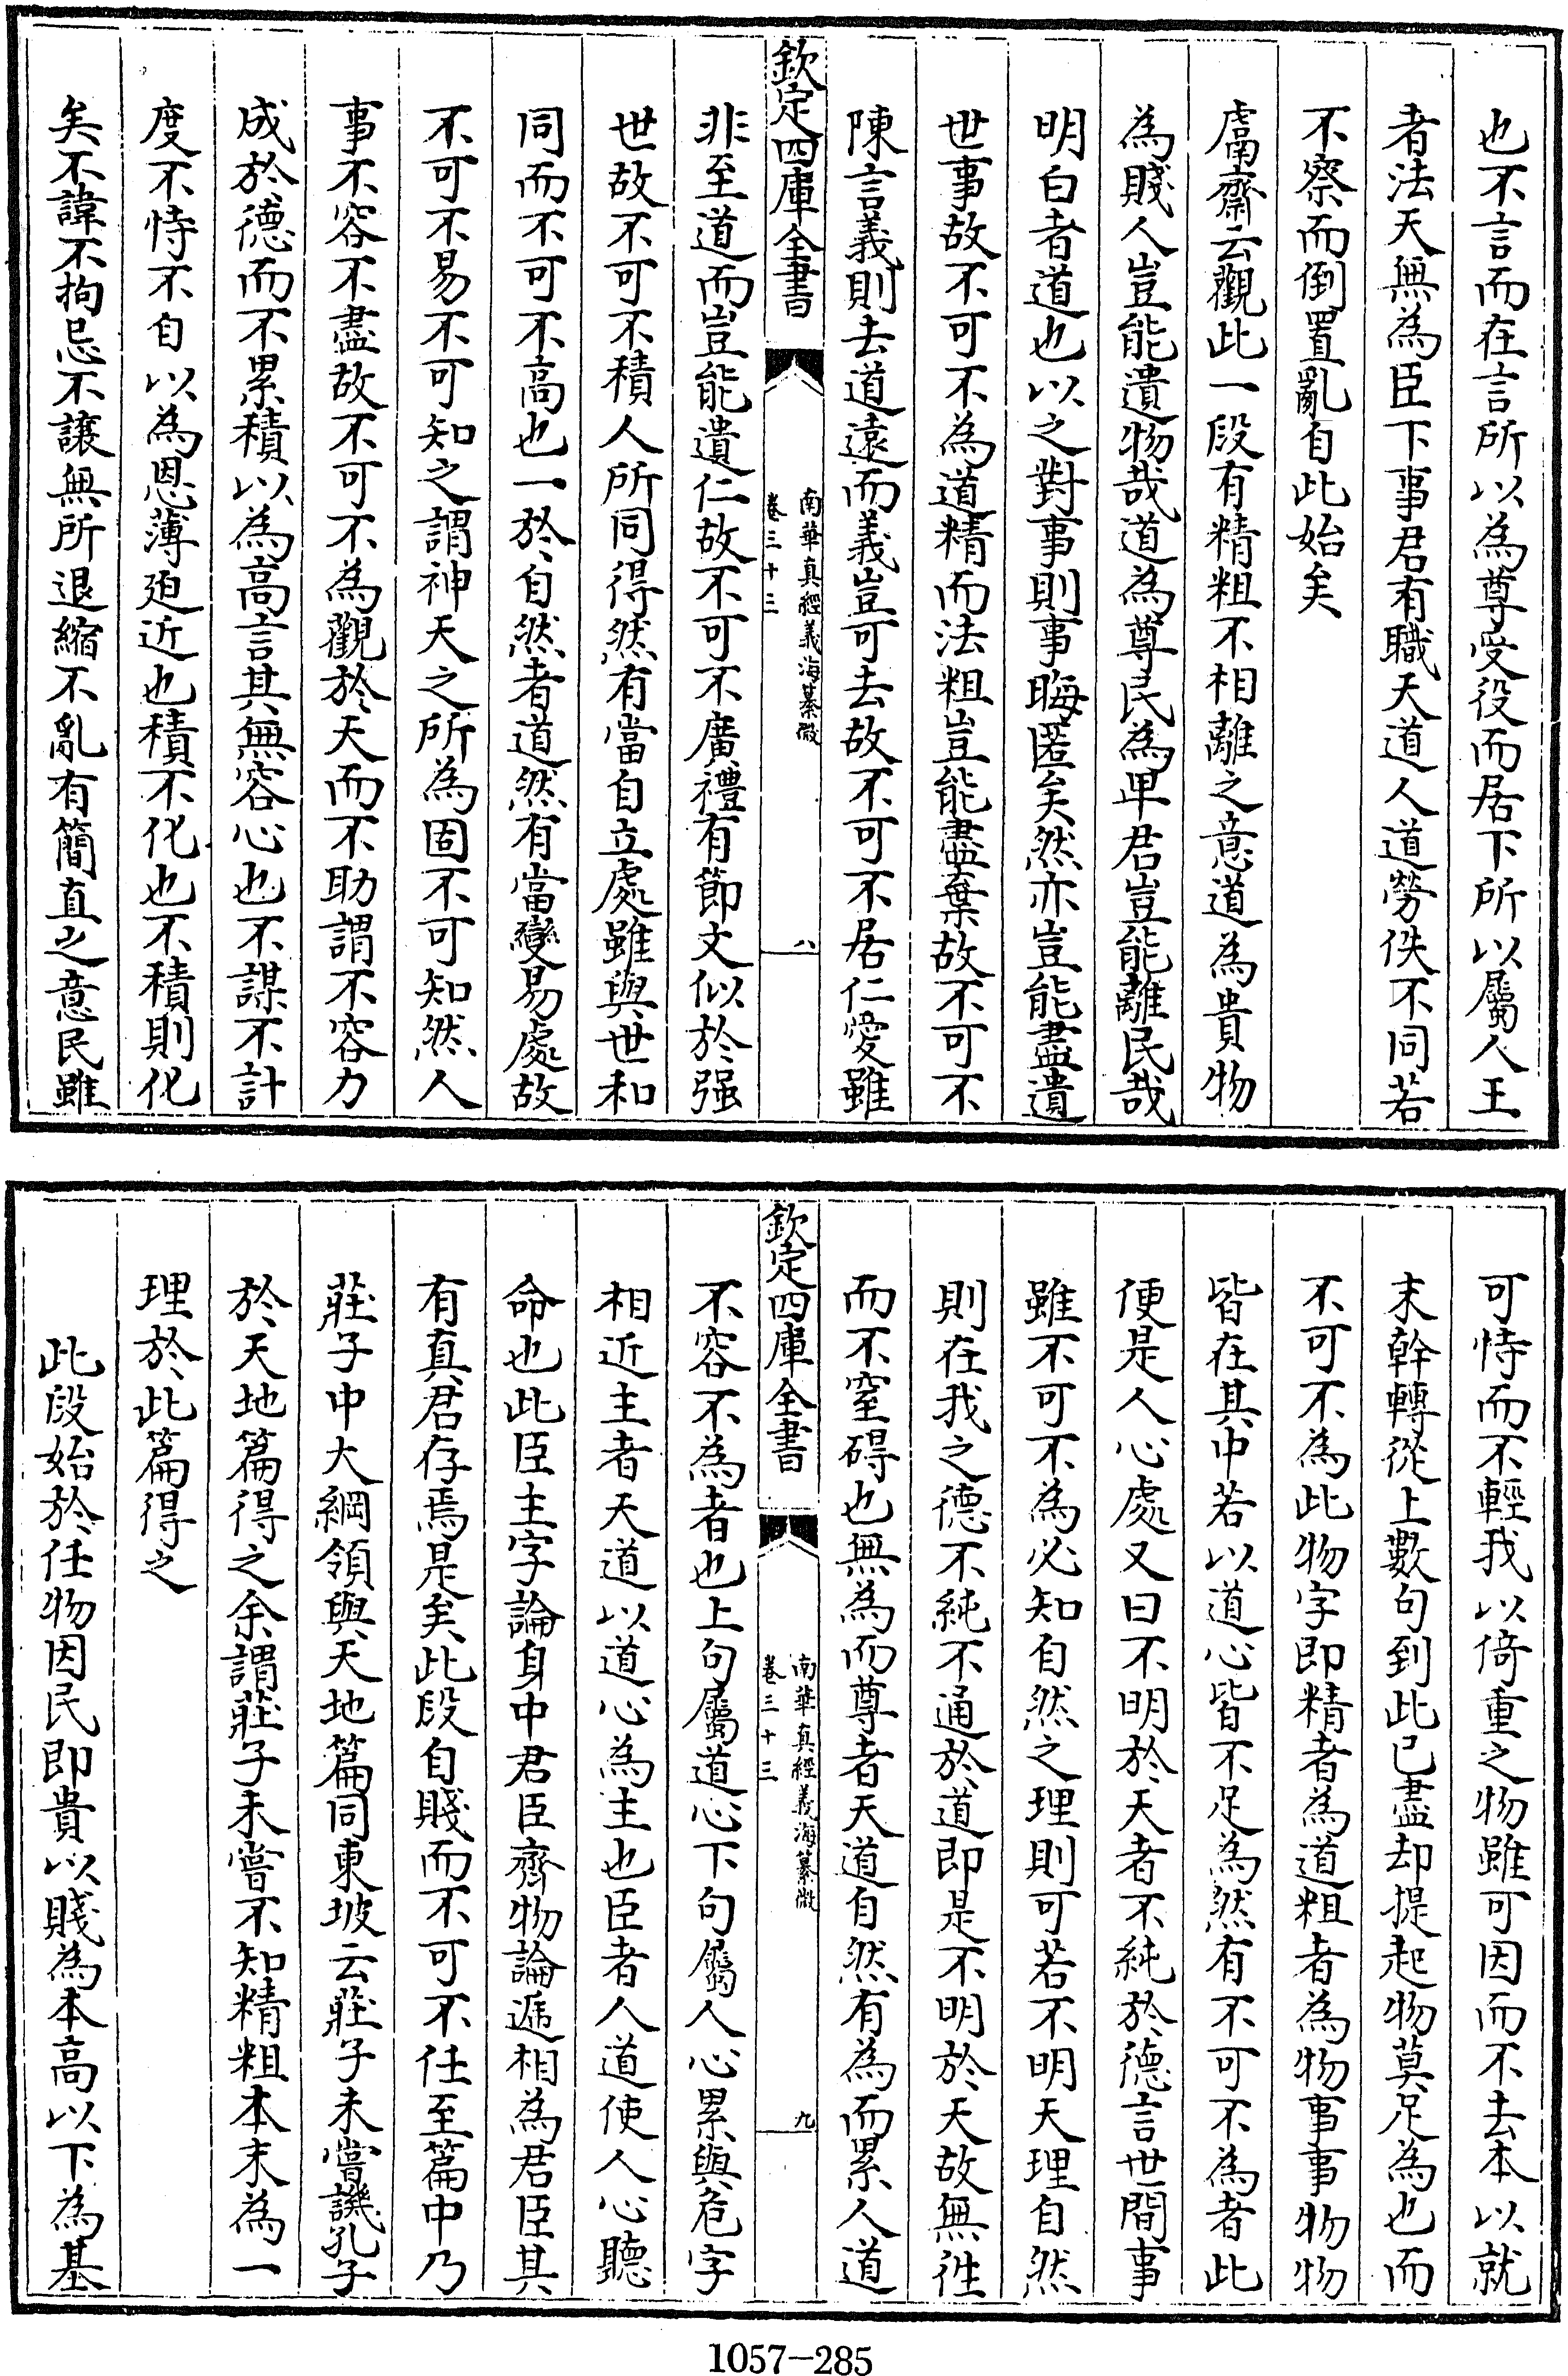 也不言而在言所以為尊受役而居下所以屬人王
者法天無為臣下事君有職天道人道勞佚不同若
不察而倒置亂自此始矣
鬳齋云觀此一段有精粗不相離之意道為貴物
為賤人豈能遺物哉道為尊民為卑君豈能離民哉
明白者道也以之對事則事晦匿矣然亦豈能盡遺
世事故不可不為道精而法粗豈能盡棄故不可不
陳言義則去道遠而義豈可去故不可不居仁愛雖
欽定四庫全書
南華真經義海纂微
卷三十三
八
非至道而豈能遺仁故不可不廣禮有節文似於强
世故不可不積人所同得然有當自立處雖與世和
同而不可不高也一於自然者道然有當變易處故
不可不易不可知之謂神天之所為固不可知然人
事不容不盡故不可不為觀於天而不助謂不容力
成於德而不累積以為高言其無容心也不謀不計
度不恃不自以為恩薄廹近也積不化也不積則化
矣不諱不拘忌不讓無所退縮不亂有簡直之意民雖
可恃而不輕我以倚重之物雖可因而不去本以就
末幹轉從上數句到此已盡却提起物莫足為也而
不可不為此物字即精者為道粗者為物事事物物
皆在其中若以道心皆不足為然有不可不為者此
便是人心處又曰不明於天者不純於德言世間事
雖不可不為必知自然之理則可若不明天理自然
則在我之德不純不通於道即是不明於天故無徃
而不窒碍也無為而尊者天道自然有為而累人道
欽定四庫全書
南華真經義海纂微
卷三十三
九
不容不為者也上句屬道心下句屬人心累與危字
相近主者天道以道心為主也臣者人道使人心聽
命也此臣主字論身中君臣齊物論遞相為君臣其
有真君存焉是矣此段自賤而不可不任至篇中乃
莊子中大綱領與天地篇同東坡云莊子未嘗譏孔子
於天地篇得之余謂莊子未嘗不知精粗本末為一
理於此篇得之
此段始於任物因民即貴以賤為本高以下為基
1057-285